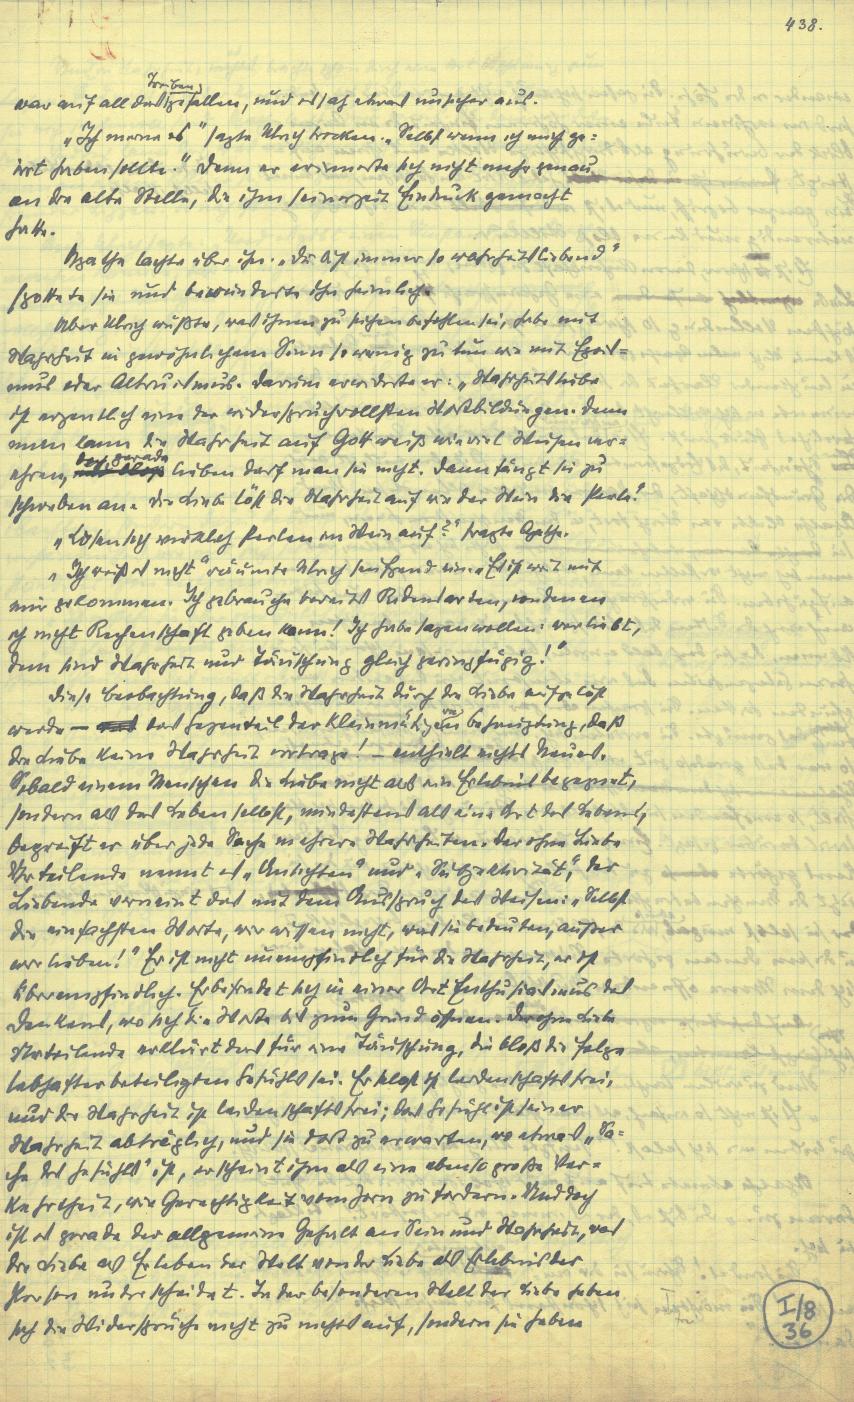 438.
Treiben
war auf all das gefallen, und es sah etwas unsicher aus.
„Ich meine es" sagte Ulrich trocken. „Selbst wenn ich mich ge=
irrt haben sollte." Denn er erinnerte sich nicht mehr genau
an die alte Stelle, die ihm seinerzeit Eindruck gemacht
hatte.
Agathe lachte über ihn. „Du bist immer so wahrheitsliebend"
spottete sie und bewunderte ihn heimlich.
Aber Ulrich wußte, was ihnen zu suchen befohlen sei, habe mit
Wahrheit in gewöhnlichem Sinn so wenig zu tun wie mit Egois=
mus oder Altruismus. Darum erwiderte er: „Wahrheitsliebe
ist eigentlich eine der widerspruchvollsten Wortbildungen. Denn
man kann die Wahrheit auf Gott weiß wieviel Weisen ver=
der gerade
ehren, lieben darf man sie nicht. Dann fängt sie zu
schweben an. Die Liebe löst die Wahrheit auf wie der Wein die Perle."
„Lösen sich wirklich Perlen in Wein auf?" fragte Agathe.
„Ich weiß es nicht" räumte Ulrich seufzend ein. „Es ist weit mit
mir gekommen. Ich gebrauche bereits Redensarten, von denen
ich nicht Rechenschaft geben kann! Ich habe sagen wollen: wer liebt,
dem sind Wahrheit und Täuschung gleich geringfügig!"
Diese Beobachtung, daß die Wahrheit durch die Liebe aufgelöst
werde — das Gegenteil der kleinmütigeren Behauptung, daß
die Liebe keine Wahrheit vertrage! — enthält nichts Neues.
Sobald einem Menschen die Liebe nicht als ein Erlebnis begegnet,
sondern als das Leben selbst, mindestens als eine Art des Lebens,
begreift er über jede Sache mehrere Wahrheiten. Der ohne Liebe
Urteilende nennt es „Ansichten" und „Subjektivität", der
Liebende verneint das mit dem Ausspruch des Weisen: „Selbst
die einfachsten Worte, wir wissen nicht, was sie bedeuten, außer
wir lieben!" Er ist nicht unempfindlich für die Wahrheit, er ist
überempfindlich. Er befindet sich in einer Art Enthusiasmus des
Denkens, wo sich die Worte bis zum Grund öffnen. Der ohne Liebe
Urteilende erklärt das für eine Täuschung, die bloß die Folge
lebhafter beteiligten Gefühls sei. Er selbst ist leidenschaftsfrei,
und die Wahrheit ist leidenschaftsfrei; das Gefühl ist seiner
Wahrheit abträglich, und sie dort zu erwarten, wo etwas „Sa=
che des Gefühls" ist, erscheint ihm als eine ebenso große Ver=
kehrtheit, wie Gerechtigkeit vom Zorn zu fordern. Und doch
ist es gerade der allgemeine Gehalt an Sein und Wahrheit, was
die Liebe als Erleben der Welt von der Liebe als Erlebnis der
Person unterscheidet. In der besonderen Welt der Liebe heben
sich die Widersprüche nicht zu nichts auf, sondern sie heben
I/8
36